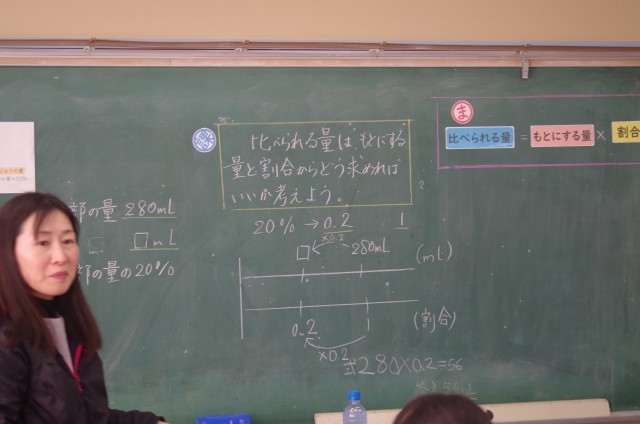 比べられる量は、もとにする
量と割合からどう求めれば
いいか考えよう。
ま
比べられる量 = もとにする量 × 割合
部の量 280mL
□mL
部の量の20%
20% → 0.2
1
×0.2
□ 280mL (mL)
0.2 1 (割合)
×0.2
式 280×0.2=56